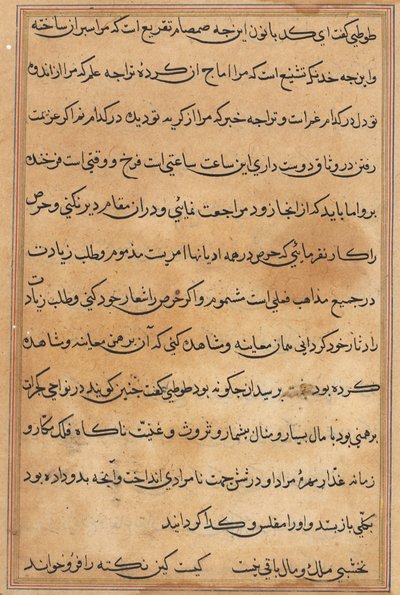 طوطی گفت ای کدبانو این چه صمصام تقریع است که مرا سپر آن ساخته
و این چه خدنک تشنیع است که مرا اماج آن کرده تو اچه علم که مرا از اندوه
تو دل در کدام غم است و ترا چه خبر که مرا از کریه تو دیک در کدام نم اکر عزیمت
رفتن در وثاق دوست داری این ساعت ساعتی است فرخ و وقتی است فرخنده
برو اما باید که از انجا زود مراجعت نمائی و در ان مقام دیر نکنی و حرص
را کار نفرمائی که حرص در همه ادیانها امریست مذموم و طلب زیادت
در جمیع مذاهب فعلی است مشموم و اکر حرص را شعار خود کنی و طلب زیادت
را دثار خود کردانی همان معاینه و مشاهده کنی که آن برهمن معاینه و مشاهده
کرده بود پرسید از چکونه بود طوطی کفت چنین کویند در نواحی کجرات
برهمنی بود با مال بسیار و منال بیشمار و ثروت و غنیت ناکاه فلک مکار و
زمانه غدار مهرهٔ مراد او در شش جهت نامرادی انداخت و آنچه بدو داده بود
بکلی باز ستد و او را مفلس و کدا کردانید
نخشبی ملک و مال باقی نیست کیست کین نکته را فرو خواند